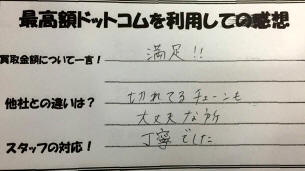 最高額ドットコムを利用しての感想
買取金額について一言！ 満足!!
他社との違いは？ 切れてるチェーンも
大丈夫な所
スタッフの対応！ 丁寧でした